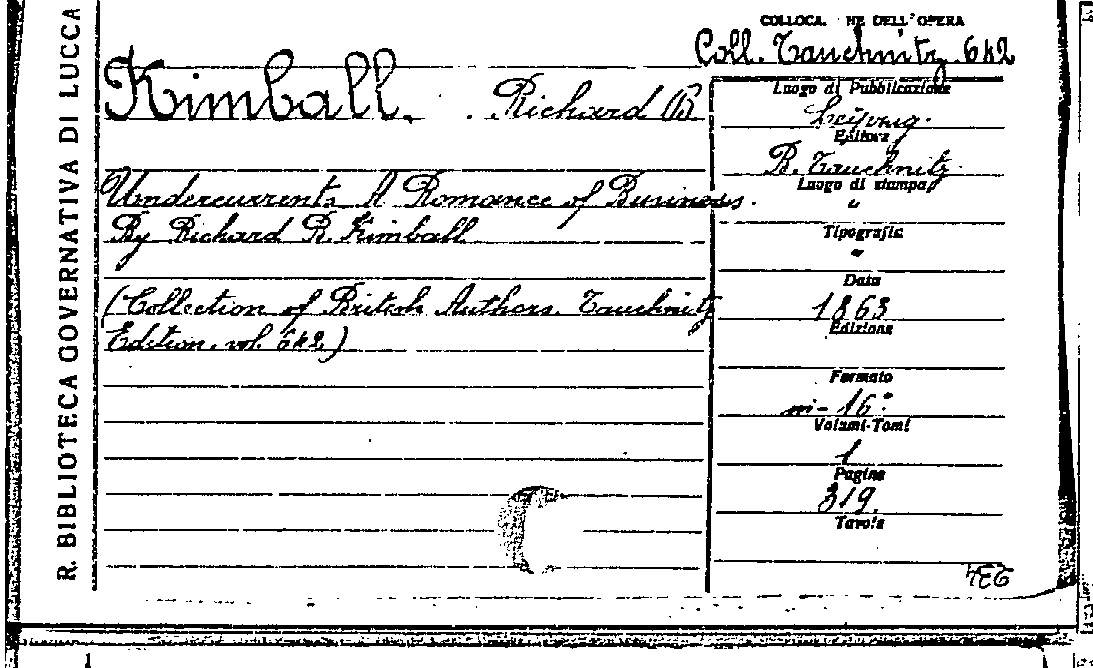 R. BIBLIOTECA GOVERNATIVA DI LUCCA
Kimball. Richard B
Undercurrents A Romance of Business.
By Richard B. Kimball
(Collection of British Authors. Tauchnitz
Edition. vol. 642)
COLLOCA HE DELL'OPERA
Coll. Tauchnitz 642
Luogo di Pubblicazione
Leipzig.
Editore
B. Tauchnitz
Luogo di stampa
"
Tipografia
"
Data
1863
Edizione
Formato
in-16°
Volumi-Tomi
1
Pagine
319.
Tavole